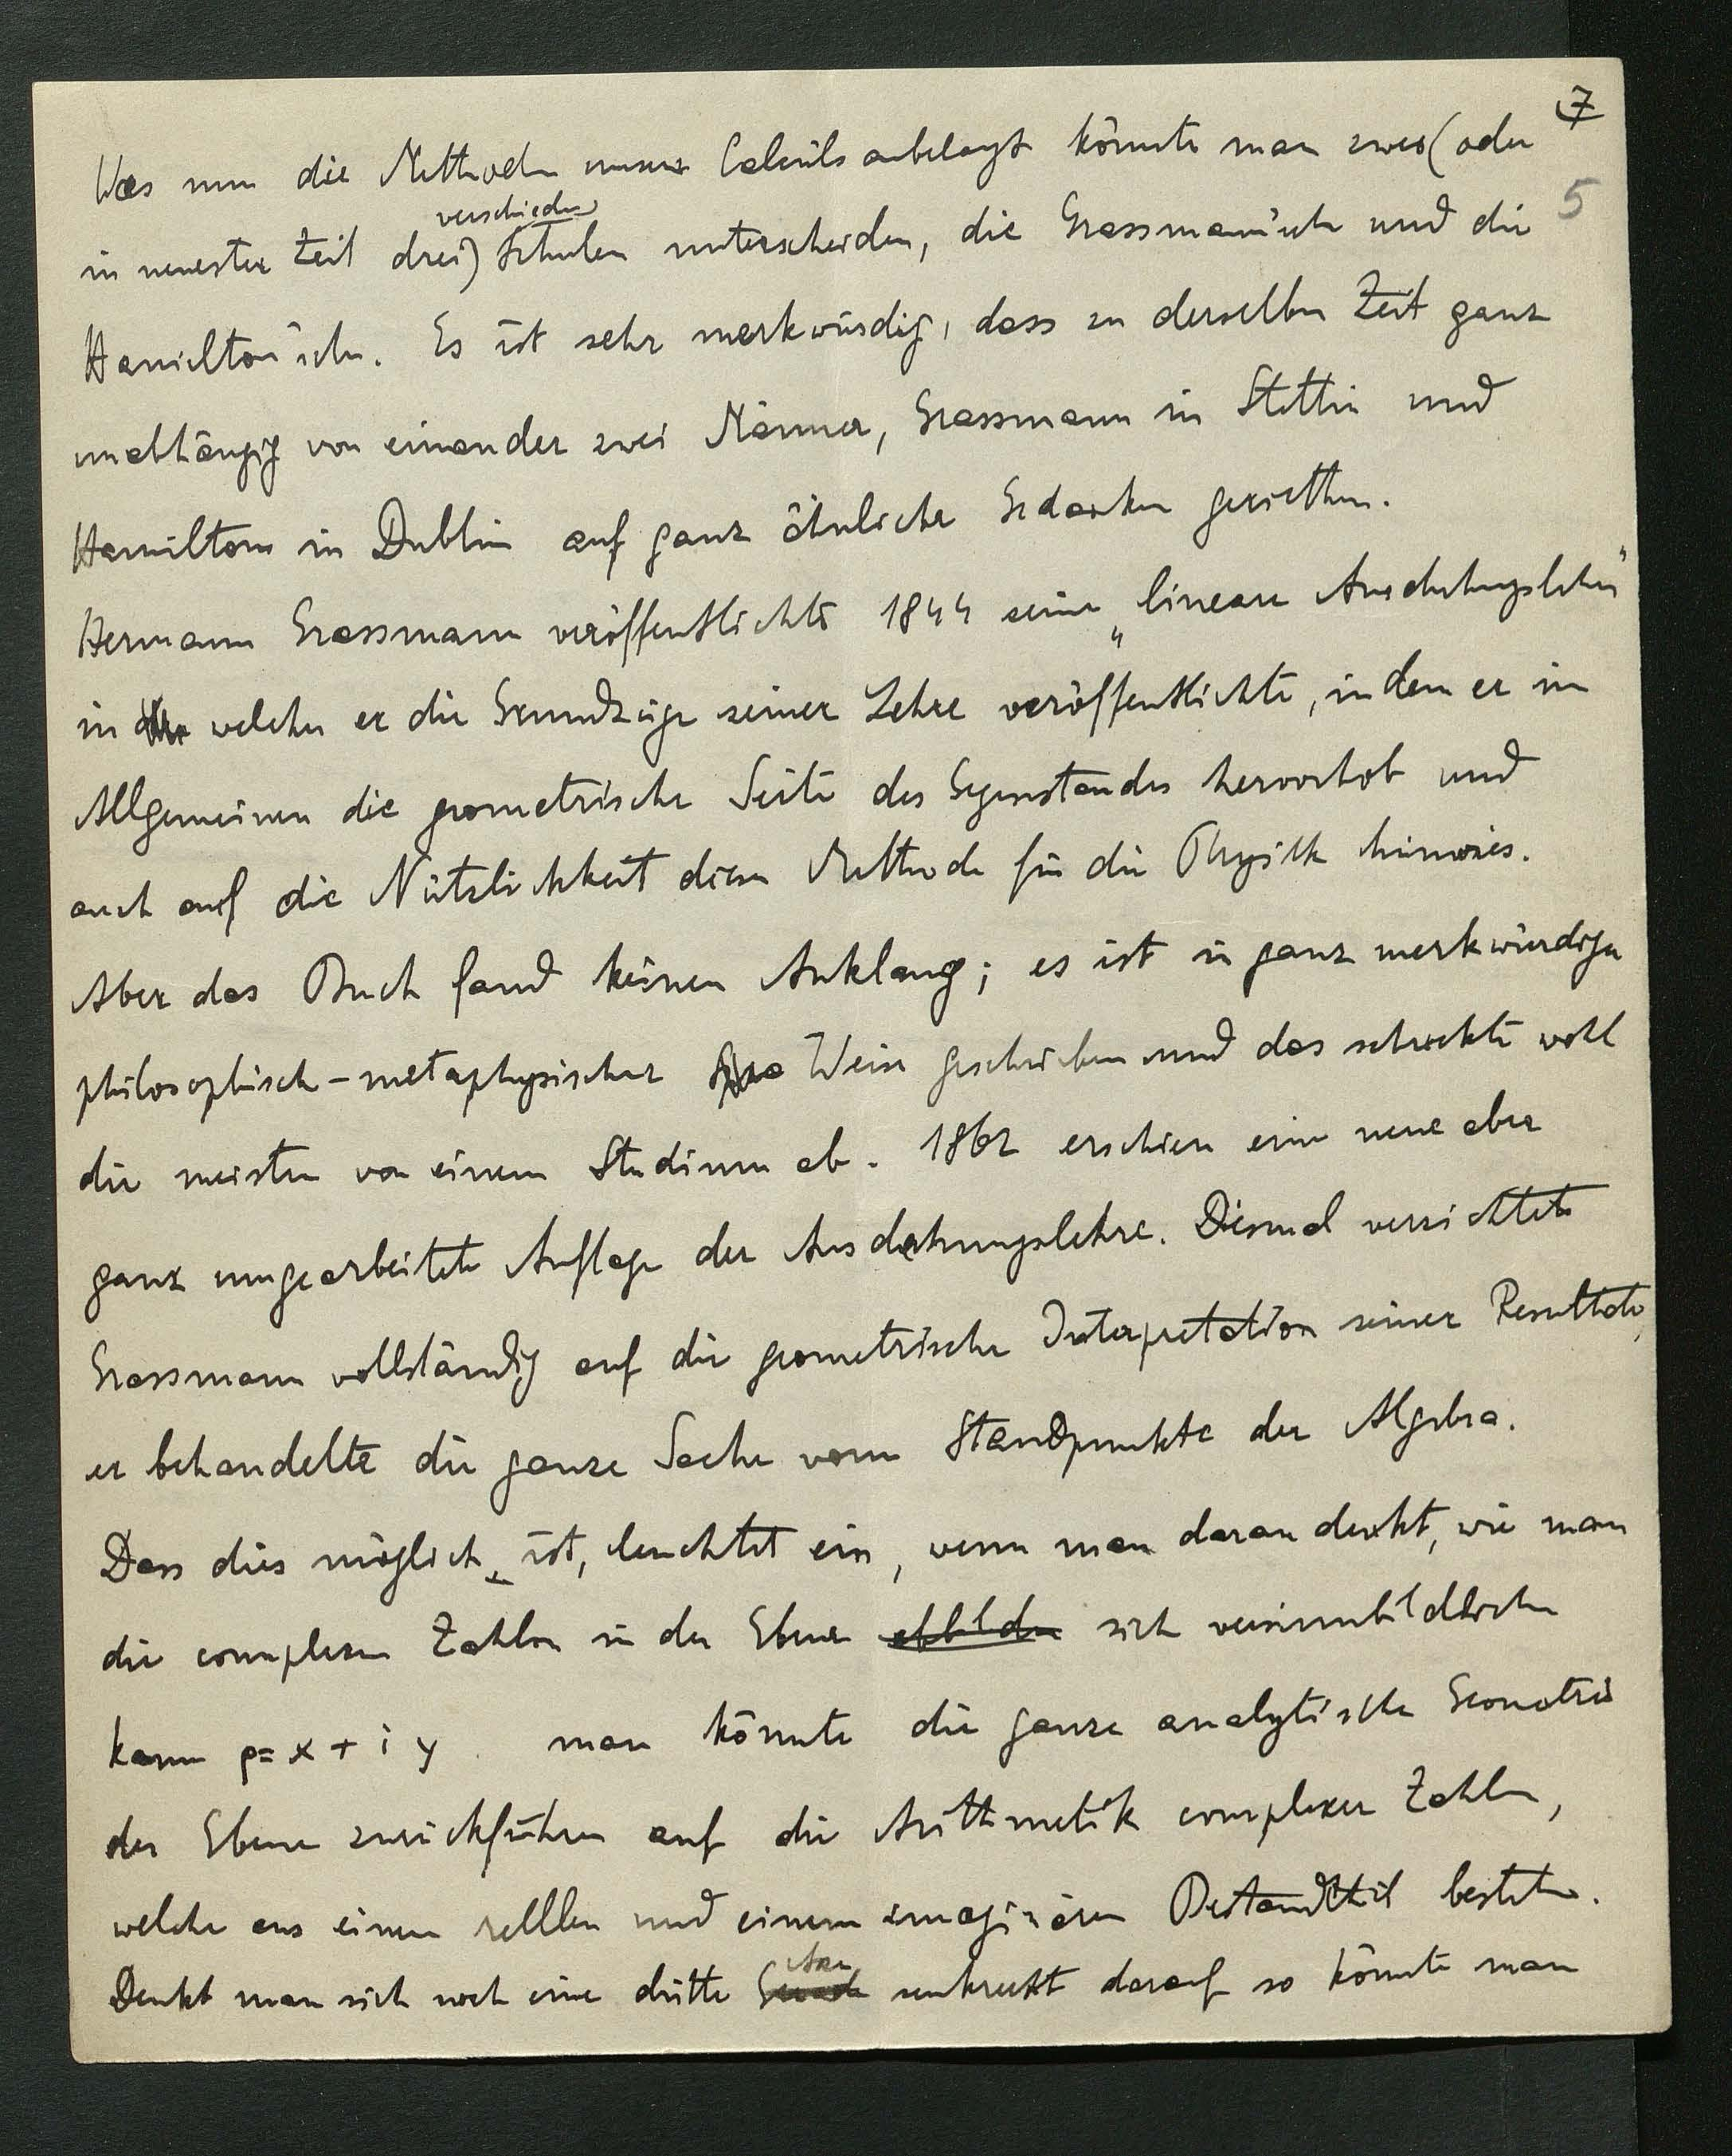 7
Was nun die Methoden unseres Calculs anbelangt könnte man zwei (oder
5
verschiedene
in neuester Zeit drei) Schulen unterscheiden, die Grassmann'sche und die
Hamilton'sche. Es ist sehr merkwürdig, dass zu derselben Zeit ganz
unabhängig von einander zwei Männer, Grassmann in Stettin und
Hamilton in Dublin auf ganz ähnliche Gedanken geriethen.
Hermann Grassmann veröffentlichte 1844 seine „lineare Ausdehnungslehre"
in welcher er die Grundzüge seiner Lehre veröffentlichte, indem er im
Allgemeinen die geometrische Seite des Gegenstandes hervorhob und
auch auf die Nützlichkeit dieser Methode für die Physik hinwies.
Aber das Buch fand keinen Anklang; es ist in ganz merkwürdiger
philosophisch-metaphysischer Weise geschrieben und das schreckte wohl
die meisten von einem Studium ab. 1862 erschien eine neue aber
ganz umgearbeitete Auflage der Ausdehnungslehre. Diesmal verzichtete
Grassmann vollständig auf die geometrische Interpretation seiner Resultate,
er behandelte die ganze Sache vom Standpunkte der Algebra.
Dass dies möglich ist, leuchtet ein, wenn man daran denkt, wie man
die complexen Zahlen in der Ebene abbilden sich versinnbildlichen
kann p = x + i y. man könnte die ganze analytische Geometrie
der Ebene zurückführen auf die Arithmetik complexer Zahlen,
welche aus einem rellen und einem imaginären Bestandtheil bestehen.
Axe
Denkt man sich noch eine dritte Gerade senkrecht darauf so könnte man